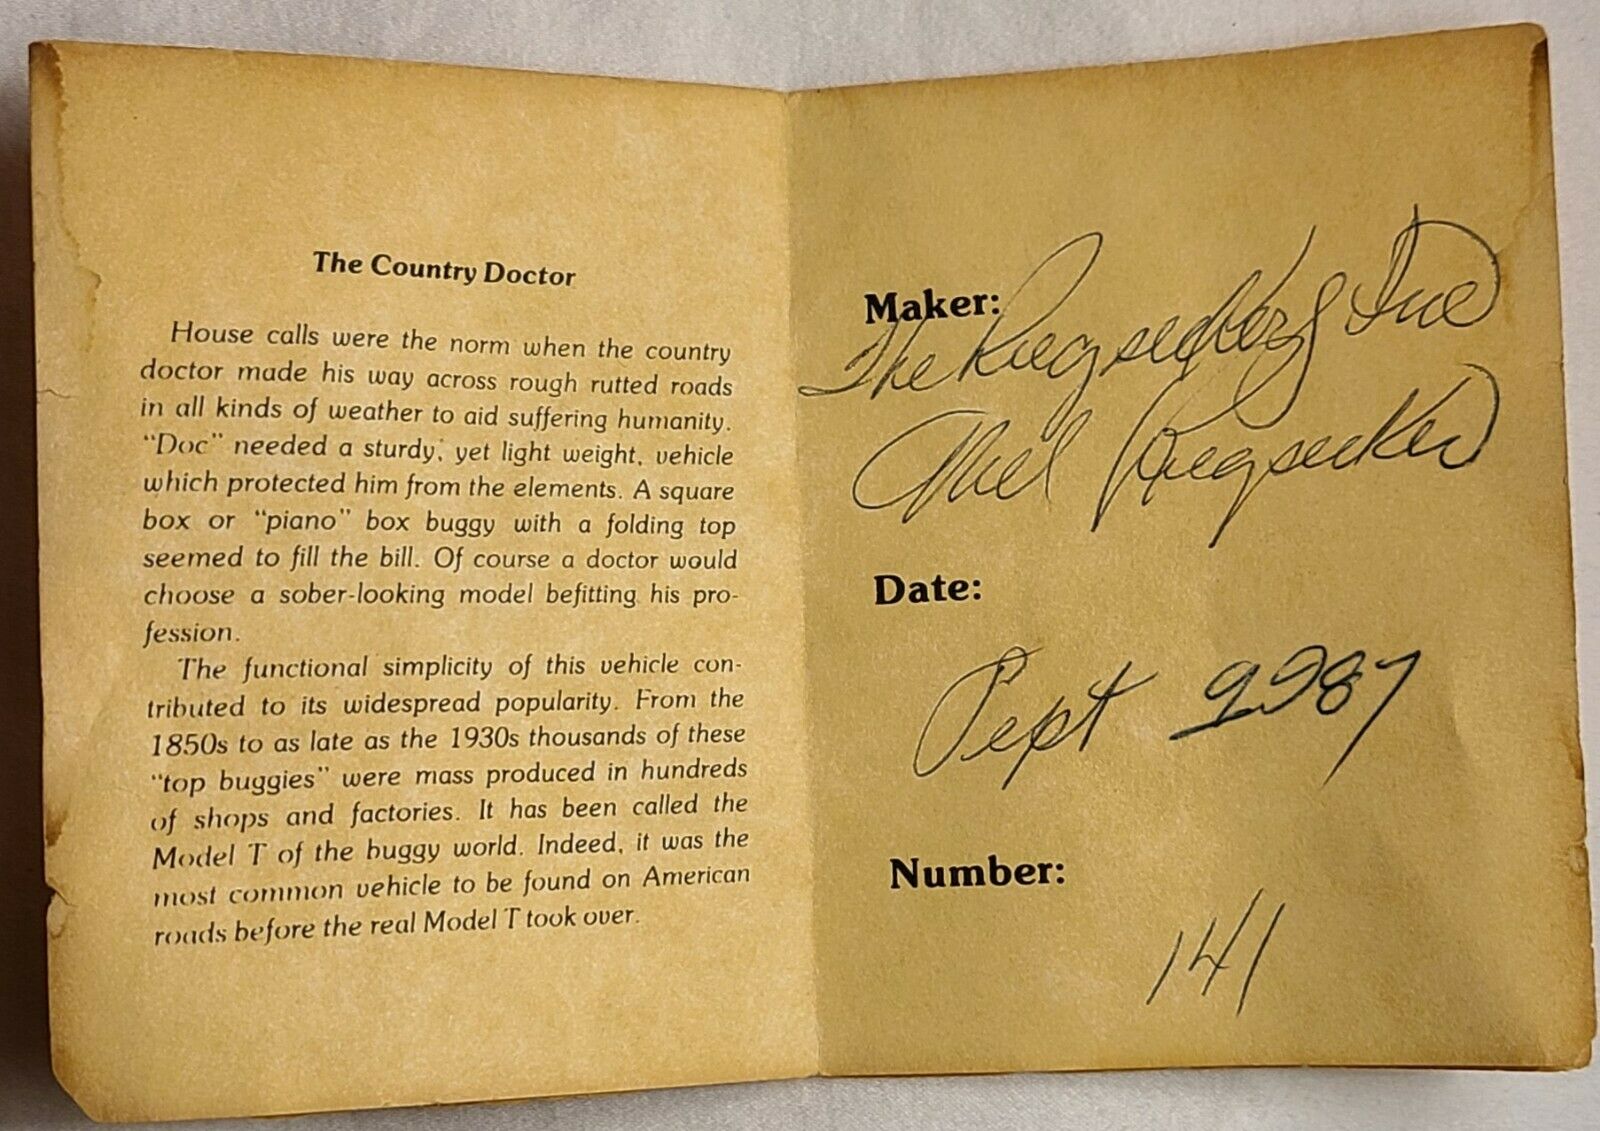 The Country Doctor
House calls were the norm when the country
doctor made his way across rough rutted roads
in all kinds of weather to aid suffering humanity.
"Doc" needed a sturdy, yet light weight, vehicle
which protected him from the elements. A square
box or "piano" box buggy with a folding top
seemed to fill the bill. Of course a doctor would
choose a sober-looking model befitting his pro-
fession.
The functional simplicity of this vehicle con-
tributed to its widespread popularity. From the
1850s to as late as the 1930s thousands of these
"top buggies" were mass produced in hundreds
of shops and factories. It has been called the
Model T of the buggy world. Indeed, it was the
most common vehicle to be found on American
roads before the real Model T took over.
Maker:
The
Mel Riegsecker
Date:
Sept
Number:
141